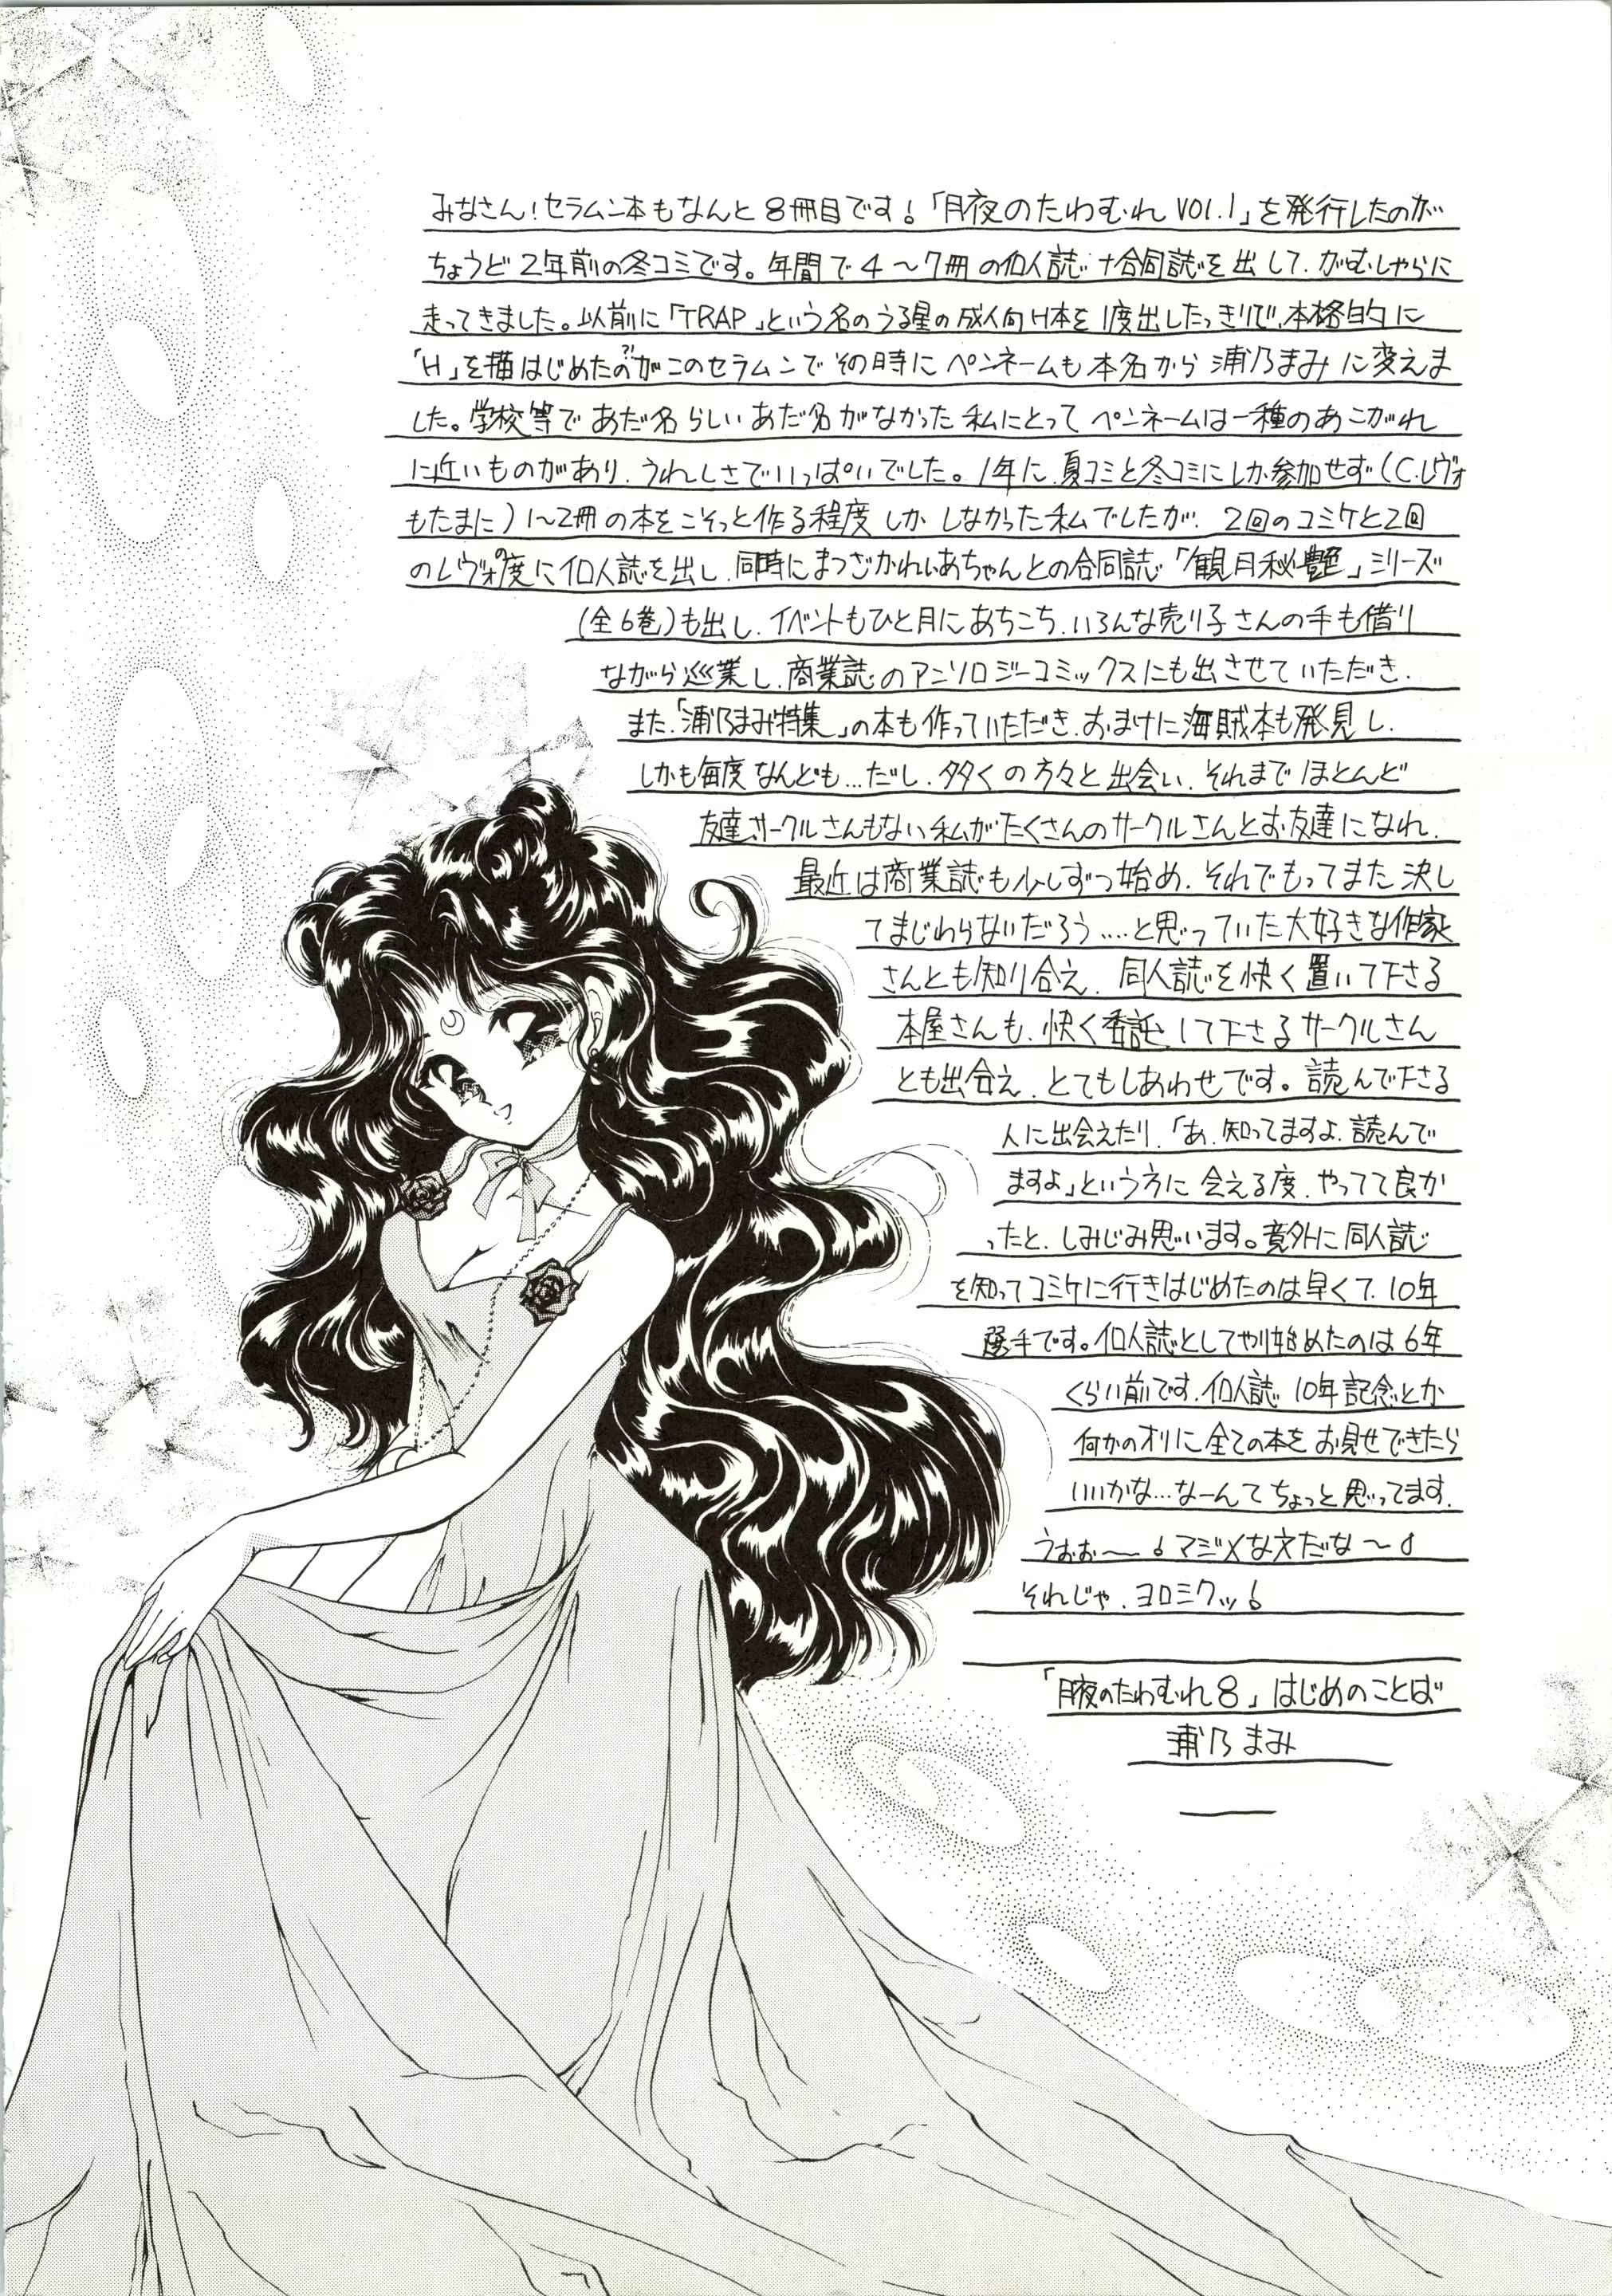 みなさん!セラムン本もなんと8冊目です!「月夜のたわむれVOL.1」を発行したのが
ちょうど2年前の冬コミです。年間で4〜7冊の個人誌+合同誌を出して、がむしゃらに
走ってきました。以前に「TRAP」という名のうる星の成人向H本を1度出したっきりで、本格的に
「H」を描はじめたのがこのセラムンでその時にペンネームも本名から浦乃まみに変えま
した。学校等であだ名らしいあだ名がなかった私にとってペンネームは一種のあこがれ
に近いものがあり、うれしさでいっぱいでした。1年に、夏コミと冬コミにしか参加せず(C.レヴォ
もたまに)1〜2冊の本をごそっと作る程度しかしなかった私でしたが、2回のコミケと2回
のレヴォの度に個人誌を出し、同時にまつざかれいあちゃんとの合同誌「観月秘艶」シリーズ
(全6巻)も出し、イベントもひと月にあちこち、いろんな売り子さんの手も借り
ながら巡業し、商業誌のアンソロジーコミックスにも出させていただき、
また、「浦乃まみ特集」の本も作っていただき、おまけに海賊本も発見し、
しかも毎度なんども…だし、多くの方々と出会い、それまでほとんど
友達サークルさんもない私がたくさんのサークルさんとお友達になれ、
最近は商業誌も少しずつ始め、それでもってまた決し
てまじわらないだろう….と思っていた大好きな作家
さんとも知り合え、同人誌を快く置いて下さる
本屋さんも、快く委託して下さるサークルさん
とも出会え、とてもしあわせです。読んで下さる
人に出会えたり、「あ、知ってますよ、読んで
ますよ」という方に会える度、やってて良か
ったと、しみじみ思います。意外に同人誌
を知ってコミケに行きはじめたのは早くて、10年
選手です。個人誌としてやり始めたのは6年
くらい前です、個人誌10年記念とか
何かのオリに全ての本をお見せできたら
いいかな…なーんてちょっと思ってます。
うおぉ〜マジメな文だな〜
それじゃ、ヨロミクッ
「月夜のたわむれ8」はじめのことば
浦乃まみ